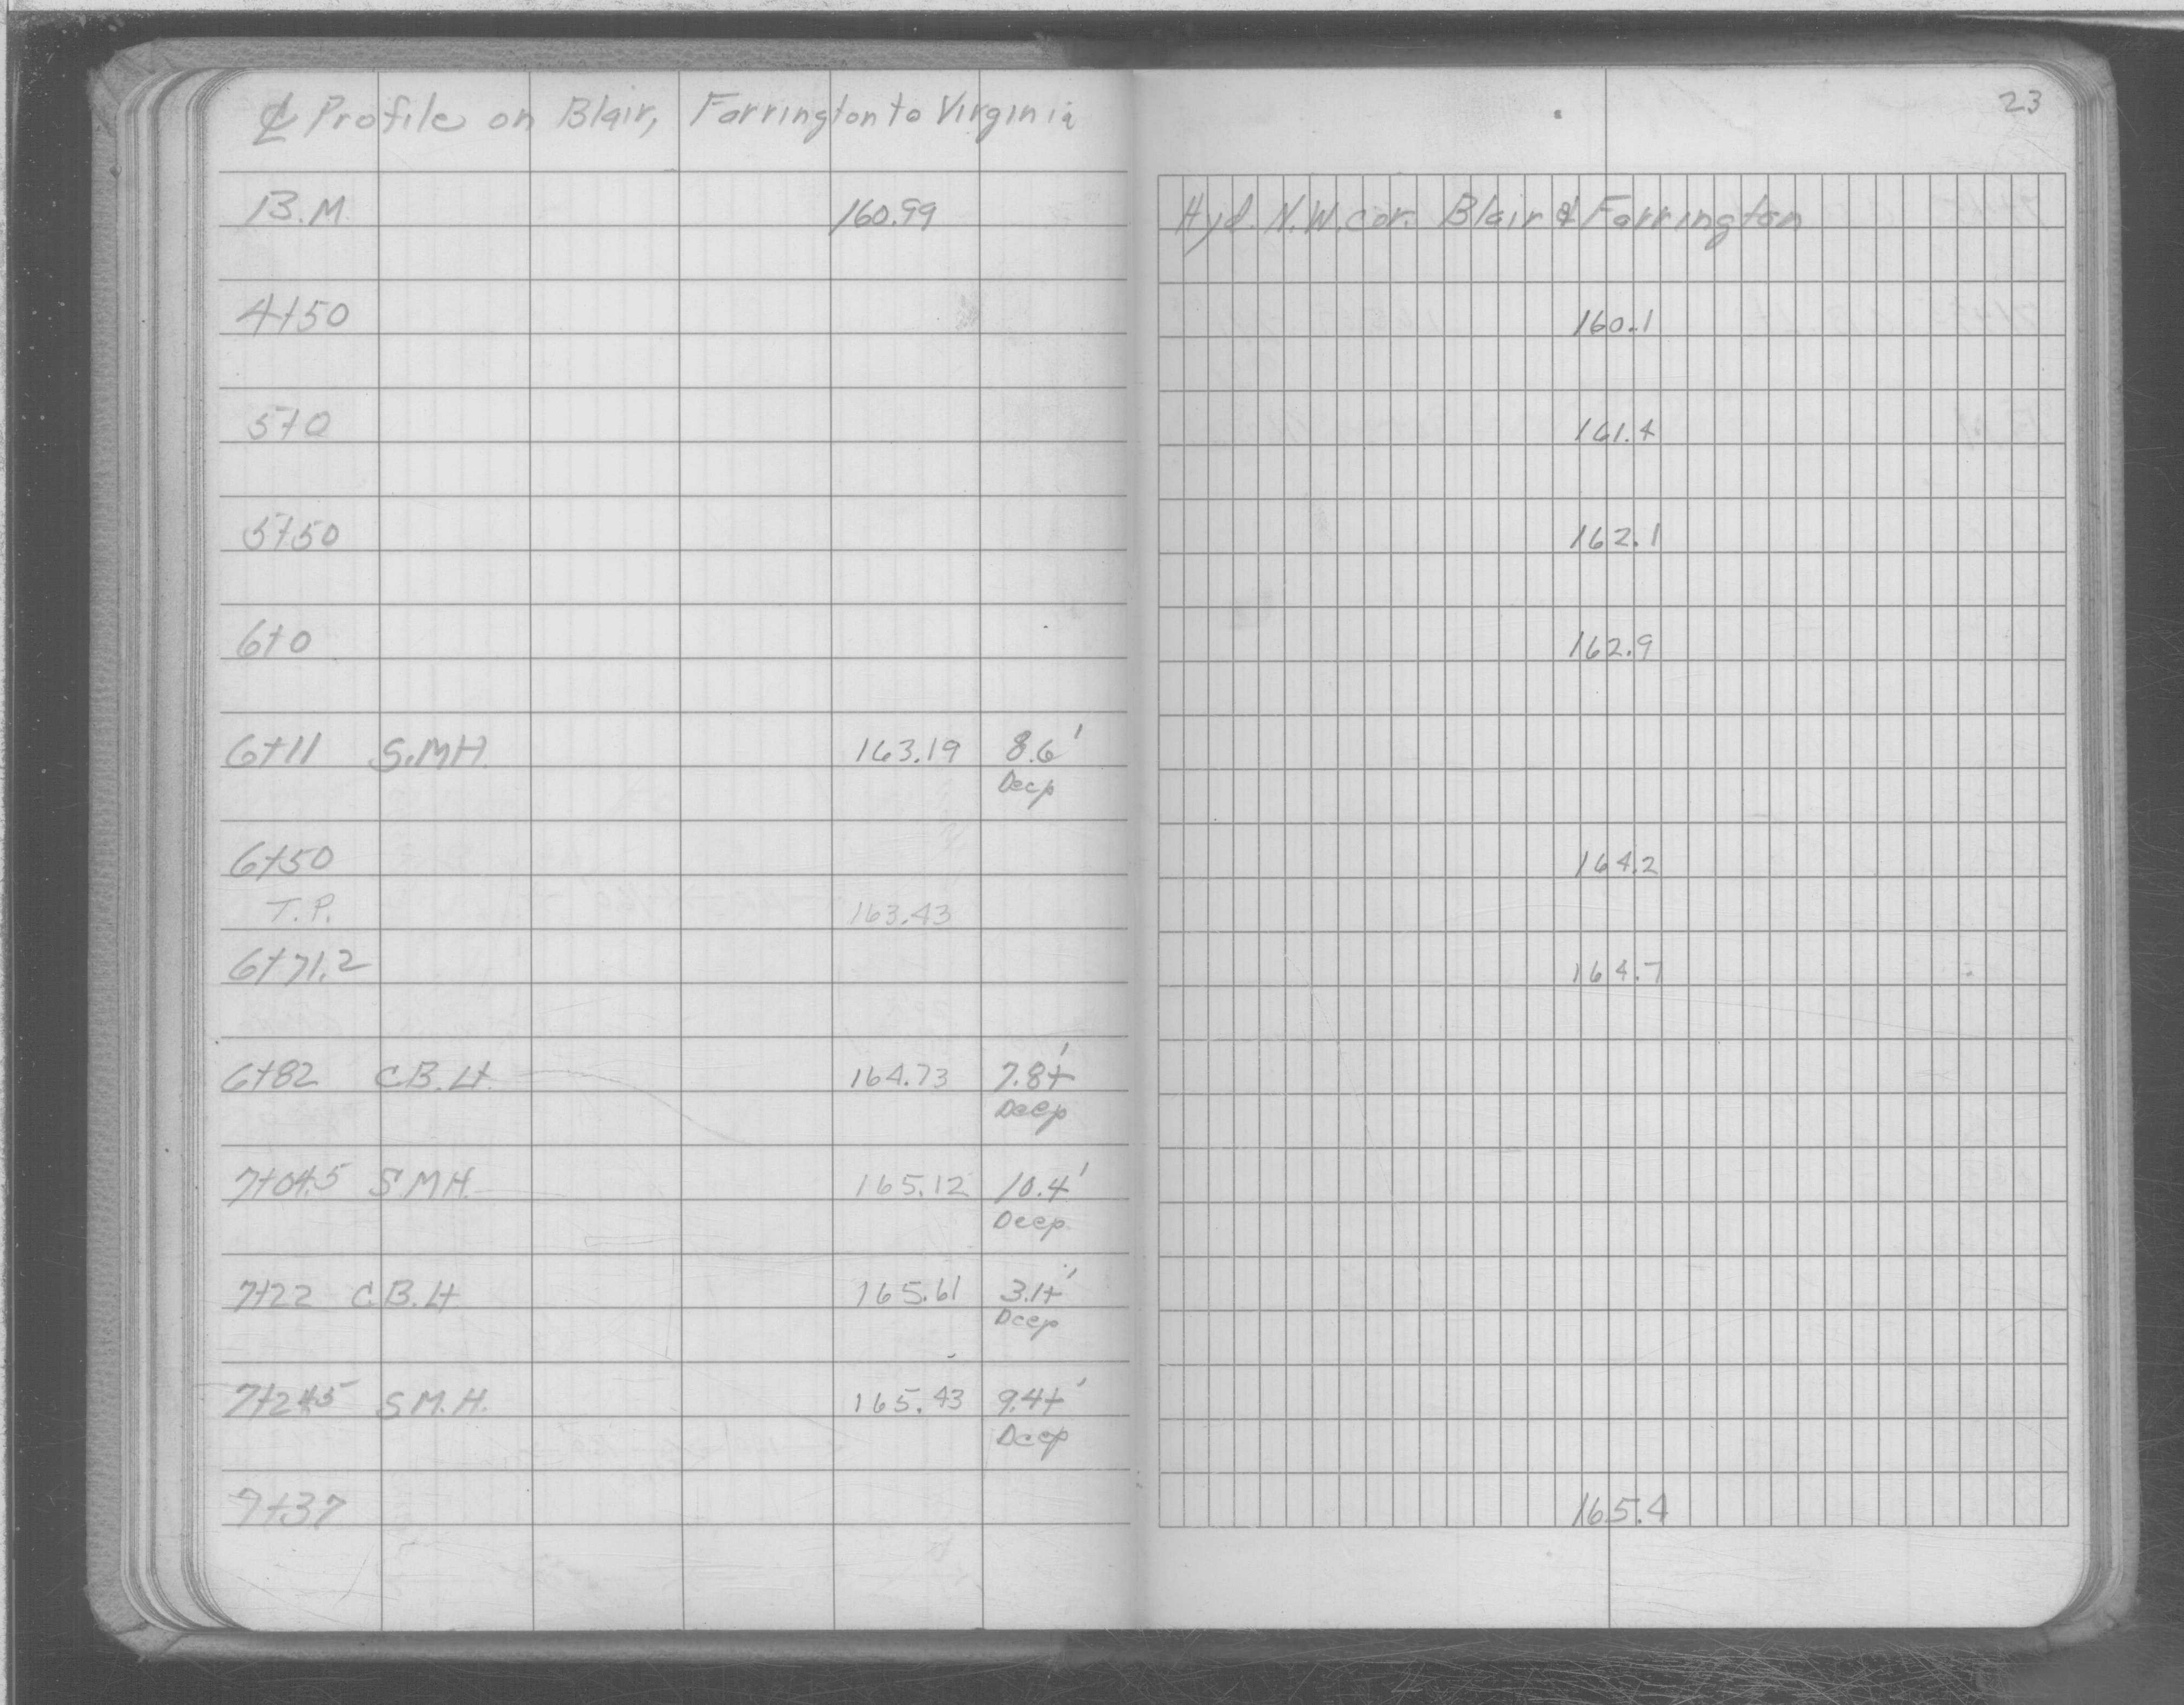 ℄ Profile on Blair, Farrington to Virginia 23
B.M. 160.99 Hyd. N.W. cor. Blair & Farrington
4+50 160.1
5+0 161.4
5+50 162.1
6+0 162.9
6+11 S.MH. 163.19 8.6'
Deep
6+50 164.2
T.P. 163.43
6+71.2 164.7
6+82 C.B. Lt. 164.73 7.8+'
Deep
7+04.5 S.M.H. 165.12 10.4'
Deep
7+22 C.B. Lt 165.61 3.1+'
Deep
7+24.5 S.M.H. 165.43 9.4+'
Deep
7+37 165.4